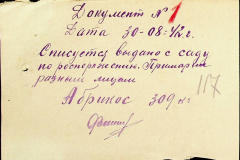 Документ № 1
Дата 30-08-42 г.
Списуется выдано с саду
по роспоряжению. Примария
разным лицам
117
Абрикос 309 кг